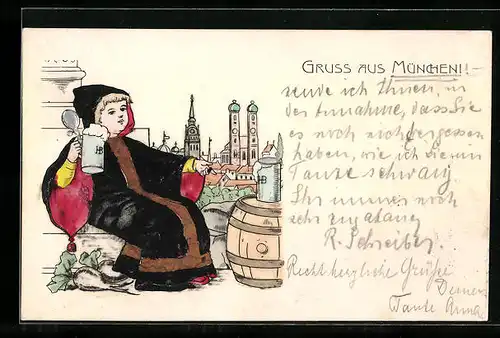 GRUSS AUS MÜNCHEN!!
sende ich Ihnen, in
der Annahme, dass Sie
es noch nicht vergessen
haben, wie ich Sie im
Tanze schwang.
Ihr immer noch
sehr
R. Schreiber.
Recht herzliche Grüße
Deiner
Tante Anna
HB
HB